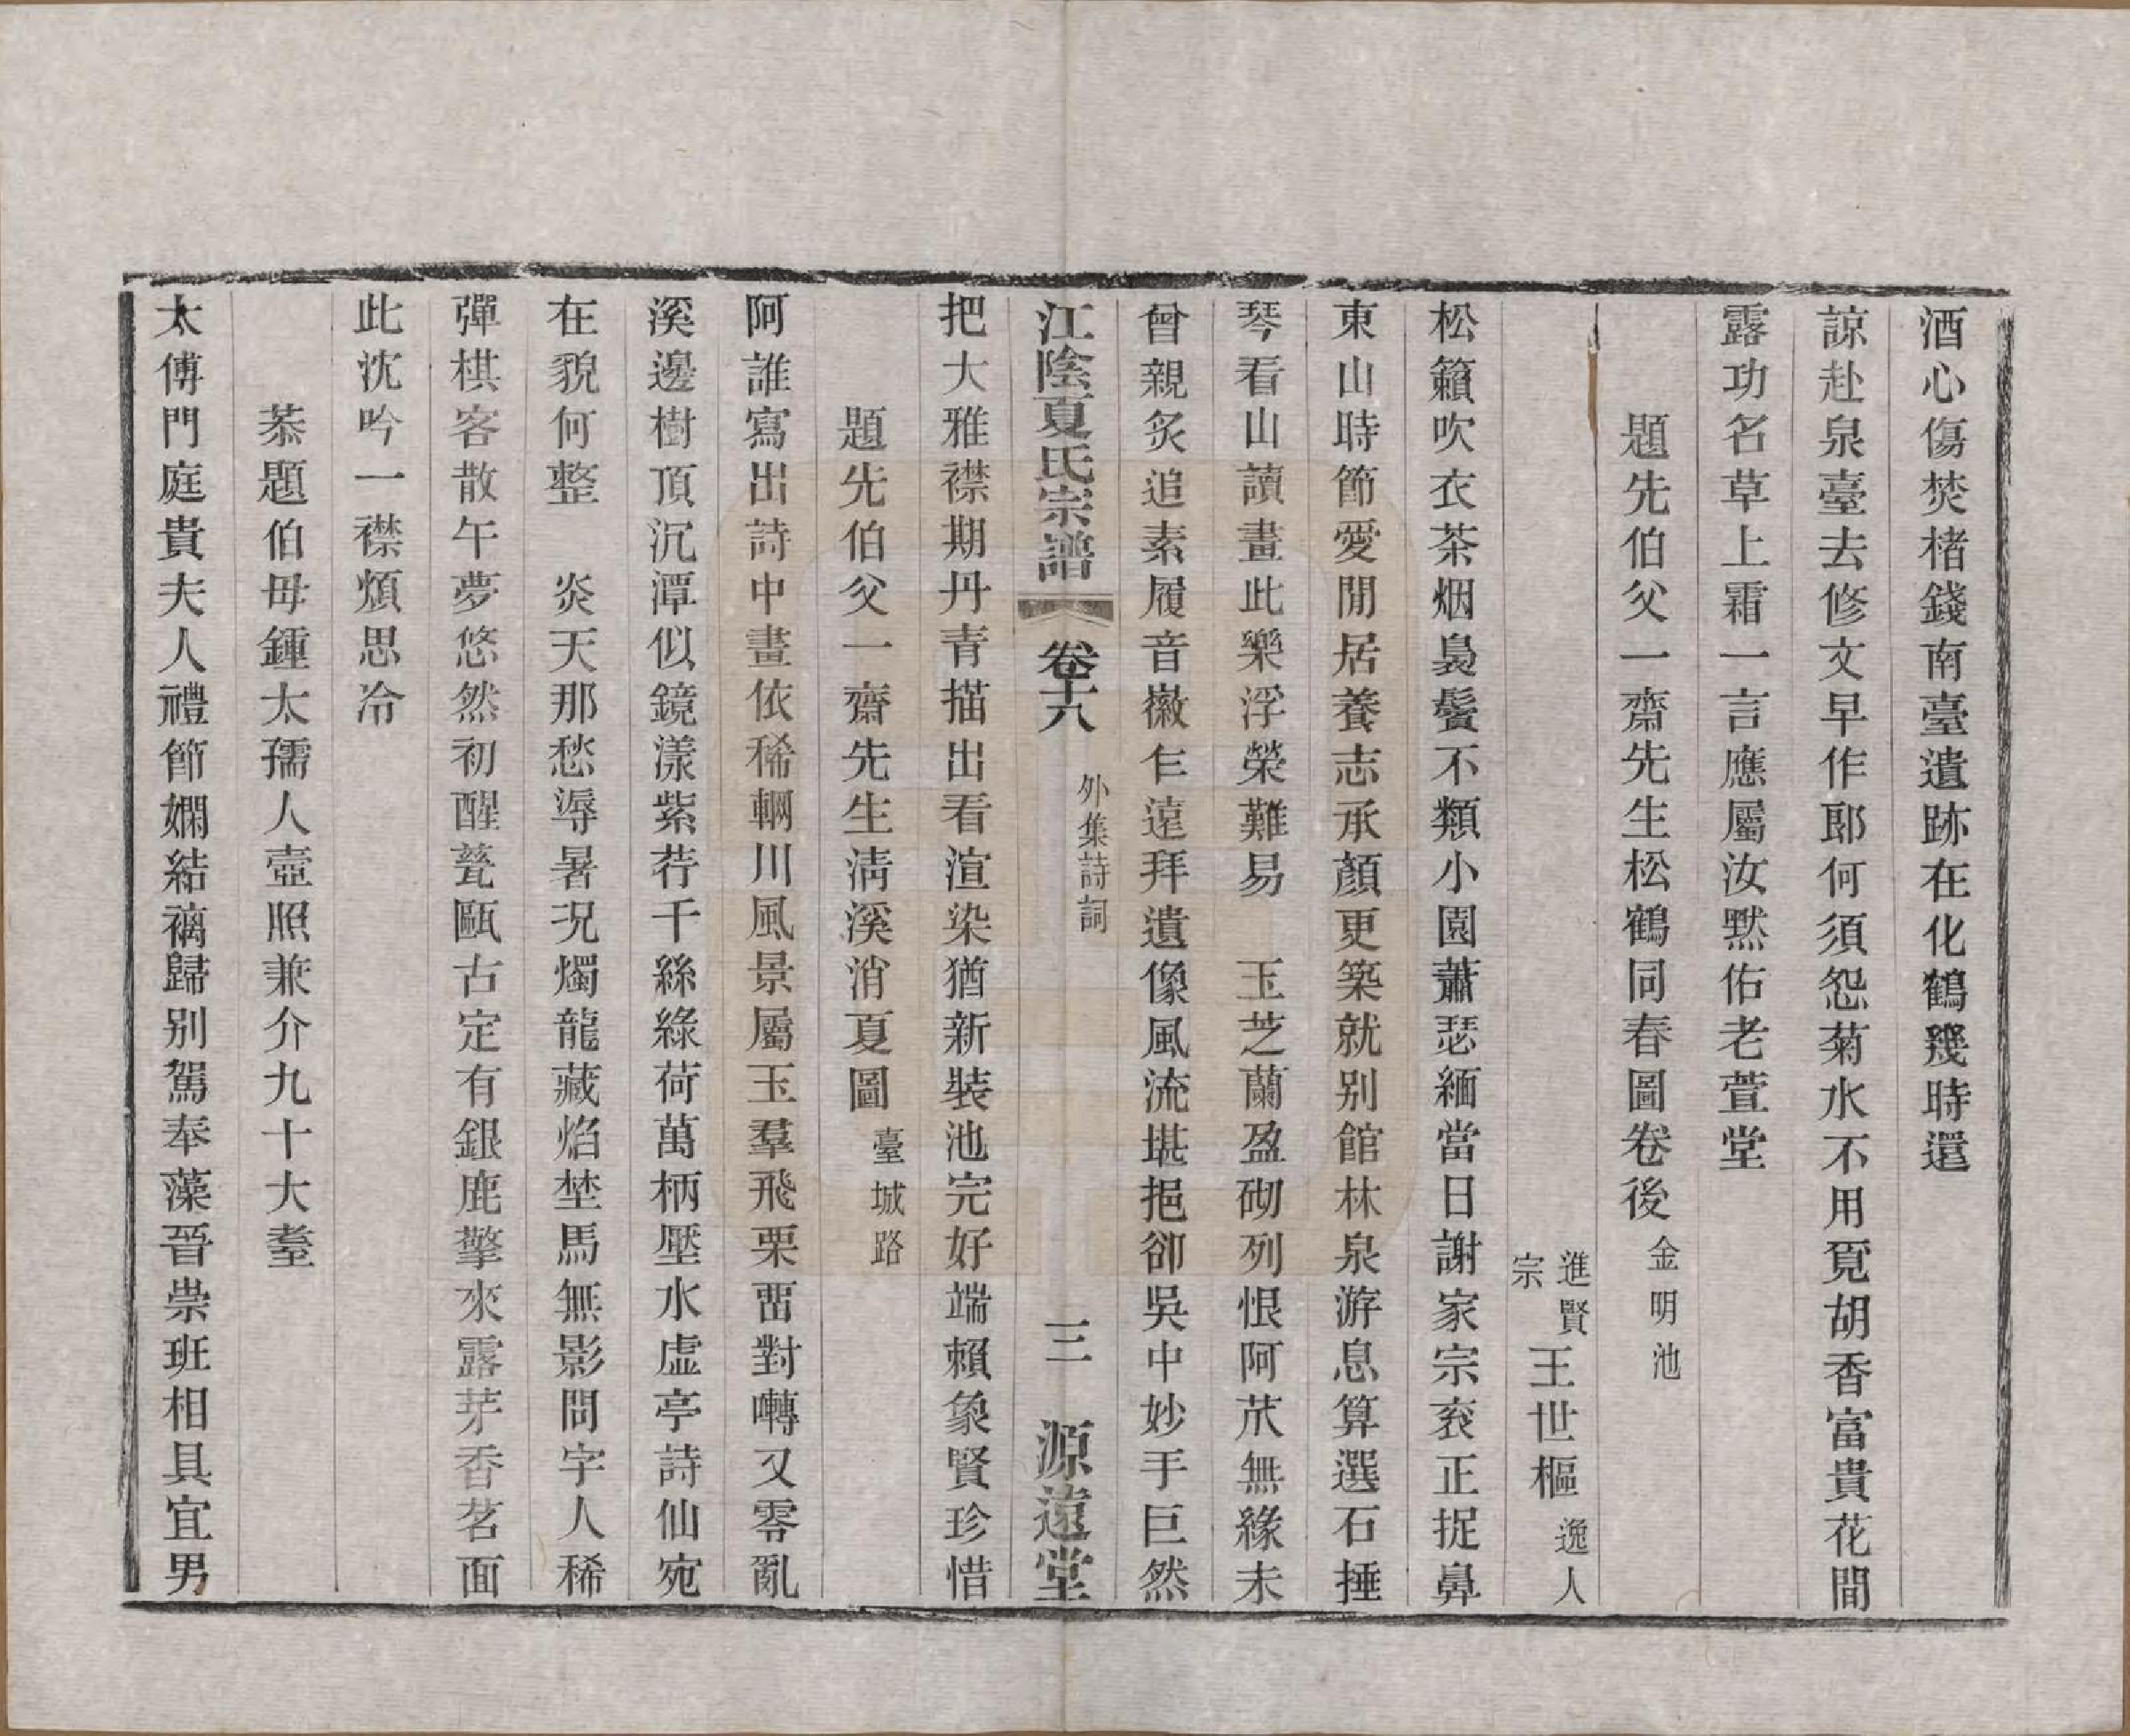 酒心傷焚楮錢南臺遺跡在化鶴幾時還
諒赴泉臺去修文早作郎何須怨菊水不用覓胡香富貴花間
露功名草上霜一言應屬汝黙佑老萱堂
題先伯父一齋先生松鶴同春圖卷後 金明池
進賢宗 王世樞 逸人
松籟吹衣茶烟裊鬢不類小園蕭瑟緬當日謝家宗衮正捉鼻
東山時節愛閒居養志承顏更築就别館林泉游息算選石捶
琴看山讀畫此樂浮榮難易 玉芝蘭盈砌列恨阿苂無緣未
曾親炙追素履音徽乍遠拜遺像風流堪挹卻吳中妙手巨然
江陰夏氏宗譜 卷十六 外集詩詞 三 源遠堂
把大雅襟期丹青描出看渲染猶新裝池完好端賴象賢珍惜
題先伯父一齋先生淸溪消夏圖 臺城路
阿誰寫出詩中畫依稀輞川風景屬玉羣飛栗畱對囀又零亂
溪邊樹頂沉潭似鏡漾紫荇千絲綠荷萬柄壓水虛亭詩仙宛
在貌何整 炎天那愁溽暑况燭龍藏焰埜馬無影問字人稀
彈棋客散午夢悠然初醒甆甌古定有銀鹿擎來露芽香茗面
此沈吟一襟煩思冷
恭題伯母鍾太孺人壺照兼介九十大耋
太傅門庭貴夫人禮節嫻結褵歸别駕奉藻晉崇班相具宜男